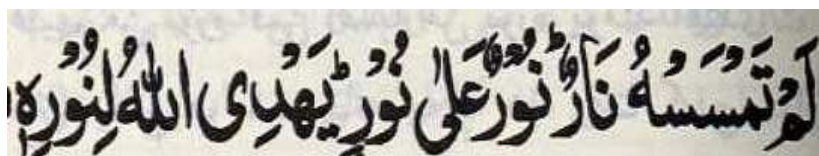 لَمْ تَمْسَسْهُ نَارٌ ؕ نُوْرٌ عَلٰی نُوْرٍ ؕ یَهْدِی اللّٰهُ لِنُوْرِهٖ